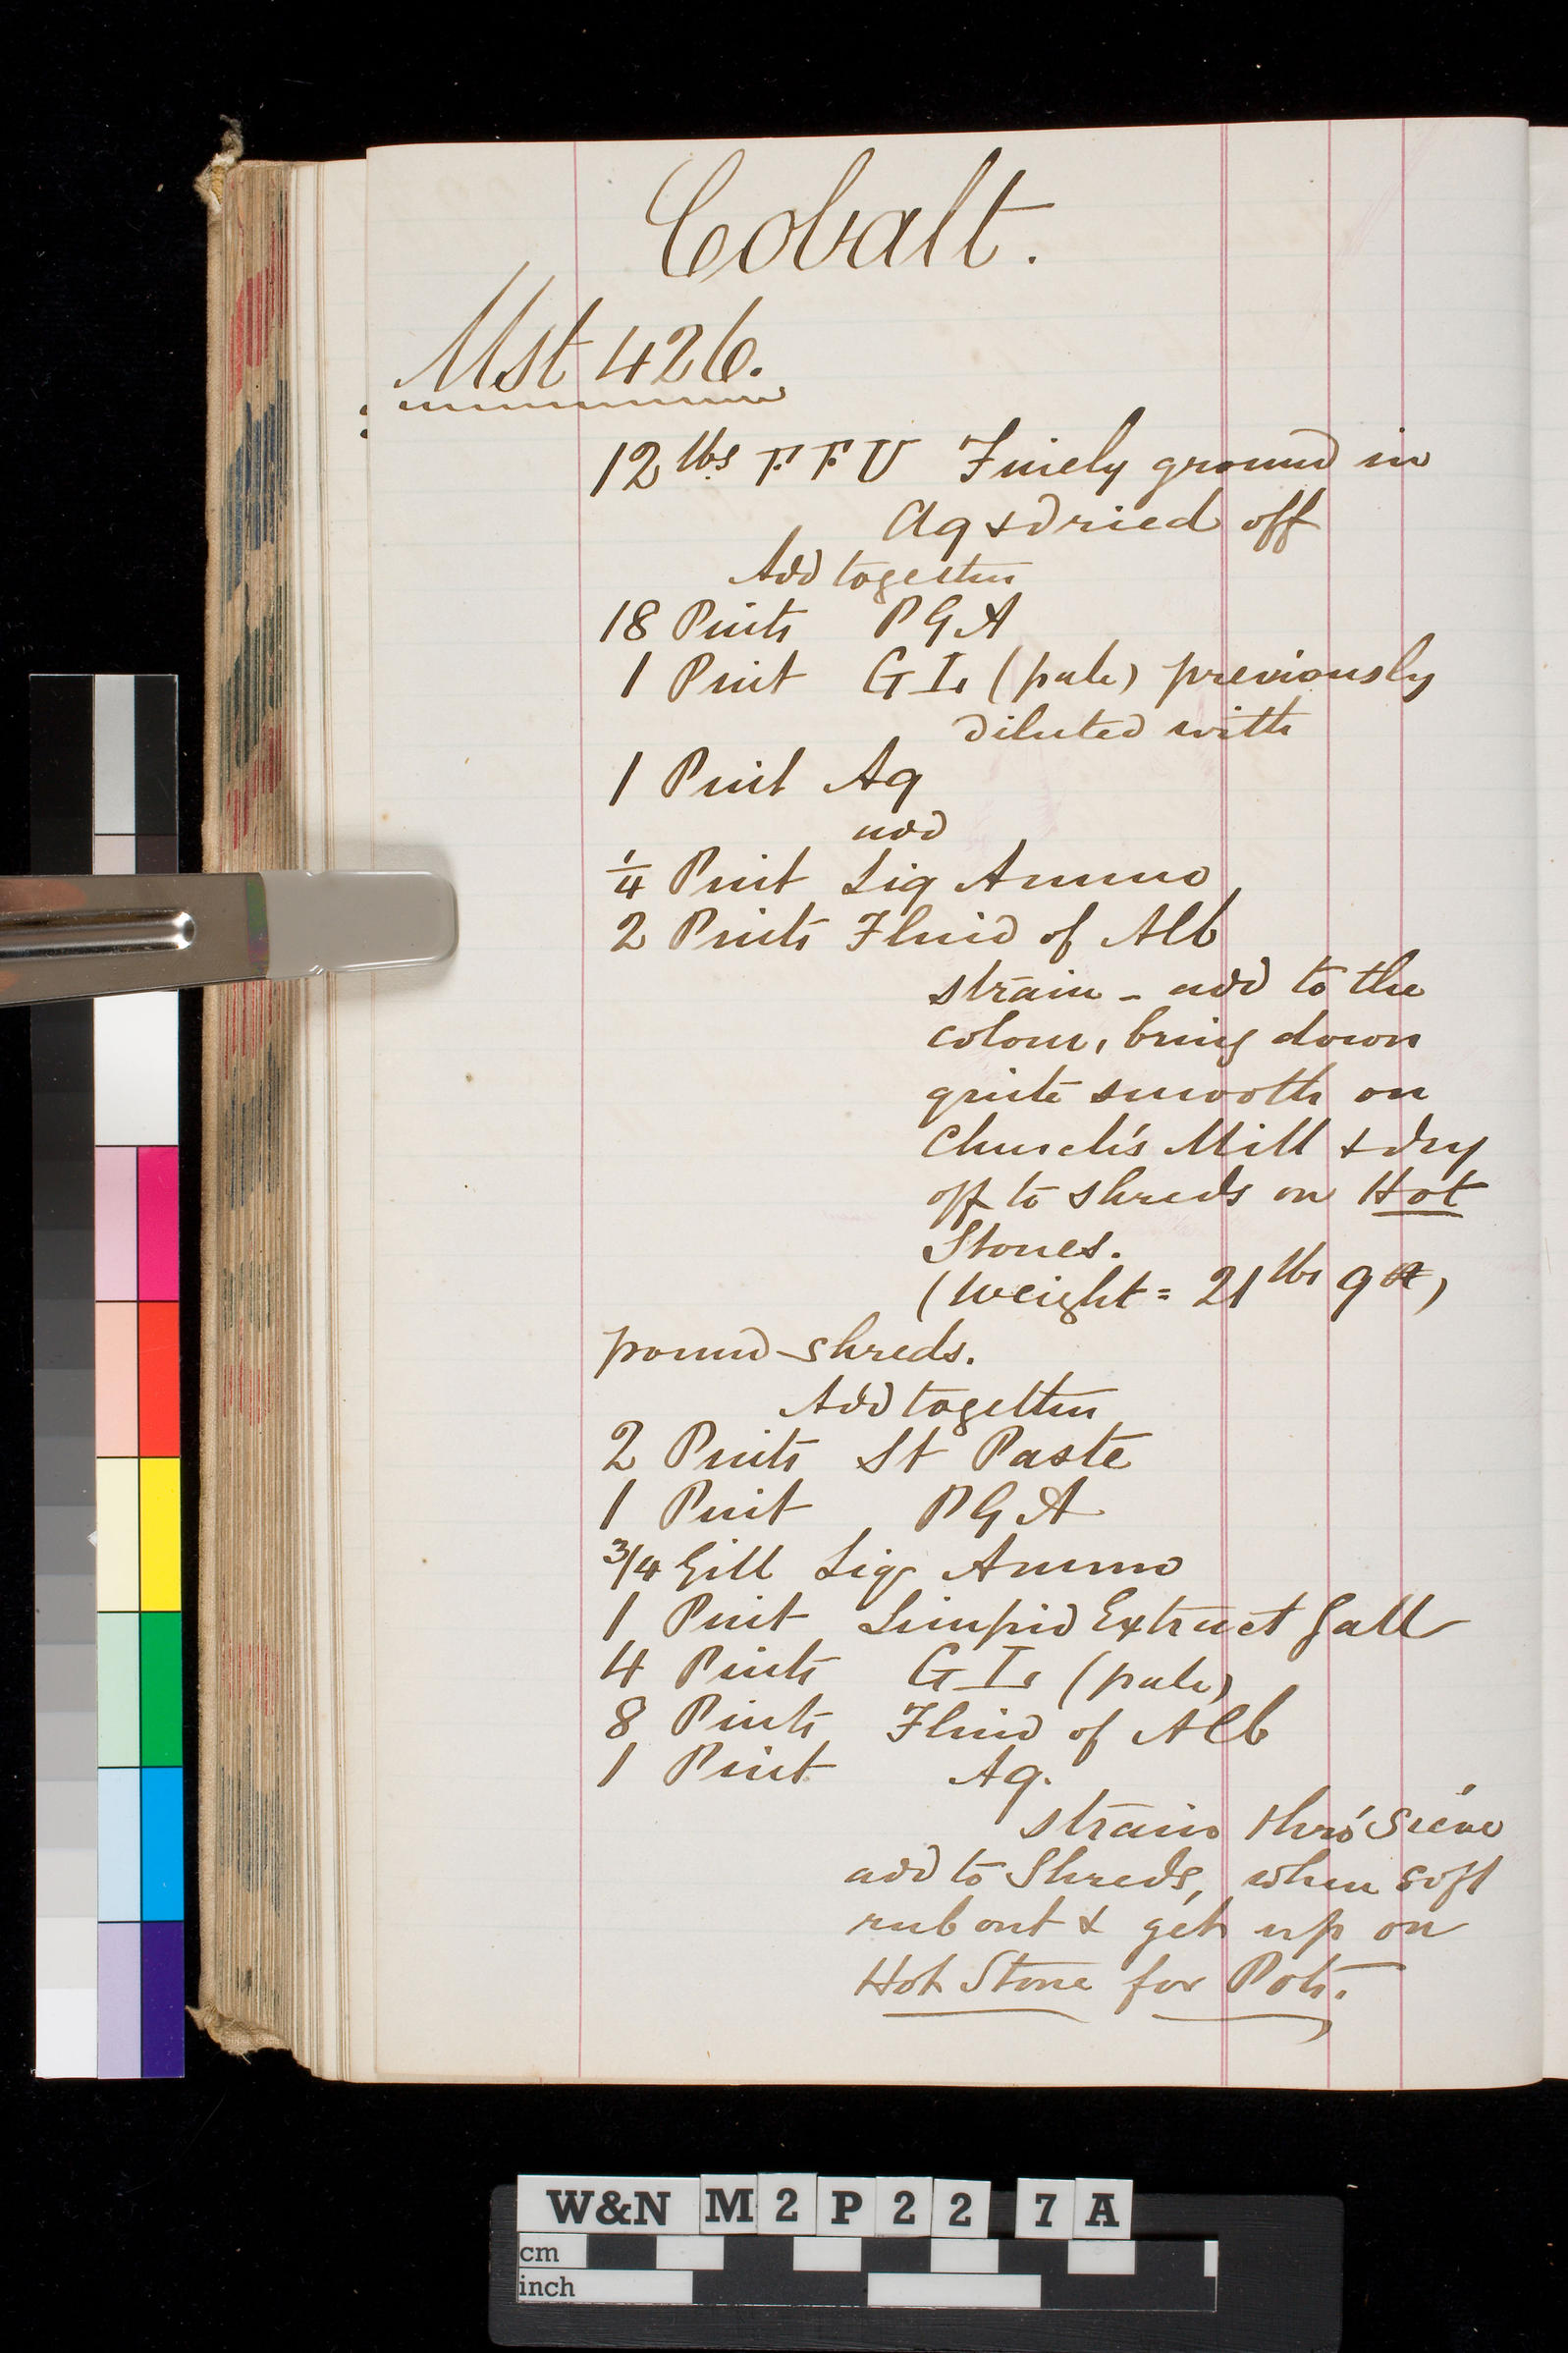 Cobalt.
Mst 426.
12 lbs F F U Finely ground in
Aq & dried off
Add together
18 Pints P G A
1 Pint G I. (pale) previously
diluted with
1 Pint Aq
add
1/4 Pint Liq Ammo
2 Pints Fluid of Alb
strain - add to the
colour, bring down
quite smooth on
Church's Mill & dry
off to shreds on Hot
Stones.
(Weight = 21 lbs 9 oz)
pound shreds.
Add together
2 Pints St Paste
1 Pint P G A
3/4 Gill Liq Ammo
1 Pint Limpid Extract Gall
4 Pints G I. (pale)
8 Pints Fluid of Alb
1 Pint Aq.
strain thro' Sieve
add to Shreds, when soft
rub out & get up on
Hot Stone for Pots.
W&N M2P22 7A
cm
inch